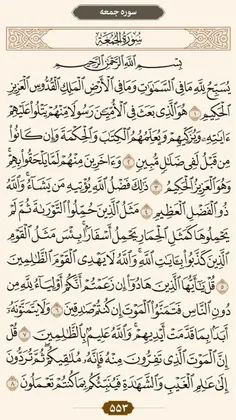 سوره جمعه
سُورَةُ الْجُمُعَةِ
بِسْمِ اللَّهِ الرَّحْمَٰنِ الرَّحِيمِ
يُسَبِّحُ لِلَّهِ مَا فِي السَّمَاوَاتِ وَمَا فِي الْأَرْضِ الْمَلِكِ الْقُدُّوسِ الْعَزِيزِ
الْحَكِيمِ ﴿١﴾ هُوَ الَّذِي بَعَثَ فِي الْأُمِّيِّينَ رَسُولًا مِنْهُمْ يَتْلُوا عَلَيْهِمْ
آيَاتِهِ وَيُزَكِّيهِمْ وَيُعَلِّمُهُمُ الْكِتَابَ وَالْحِكْمَةَ وَإِنْ كَانُوا
مِنْ قَبْلُ لَفِي ضَلَالٍ مُبِينٍ ﴿٢﴾ وَآخَرِينَ مِنْهُمْ لَمَّا يَلْحَقُوا بِهِمْ
وَهُوَ الْعَزِيزُ الْحَكِيمُ ﴿٣﴾ ذَٰلِكَ فَضْلُ اللَّهِ يُؤْتِيهِ مَنْ يَشَاءُ وَاللَّهُ
ذُو الْفَضْلِ الْعَظِيمِ ﴿٤﴾ مَثَلُ الَّذِينَ حُمِّلُوا التَّوْرَاةَ ثُمَّ لَمْ
يَحْمِلُوهَا كَمَثَلِ الْحِمَارِ يَحْمِلُ أَسْفَارًا بِئْسَ مَثَلُ الْقَوْمِ
الَّذِينَ كَذَّبُوا بِآيَاتِ اللَّهِ وَاللَّهُ لَا يَهْدِي الْقَوْمَ الظَّالِمِينَ
﴿٥﴾ قُلْ يَا أَيُّهَا الَّذِينَ هَادُوا إِنْ زَعَمْتُمْ أَنَّكُمْ أَوْلِيَاءُ لِلَّهِ مِنْ
دُونِ النَّاسِ فَتَمَنَّوُا الْمَوْتَ إِنْ كُنْتُمْ صَادِقِينَ ﴿٦﴾ وَلَا يَتَمَنَّوْنَهُ
أَبَدًا بِمَا قَدَّمَتْ أَيْدِيهِمْ وَاللَّهُ عَلِيمٌ بِالظَّالِمِينَ ﴿٧﴾ قُلْ
إِنَّ الْمَوْتَ الَّذِي تَفِرُّونَ مِنْهُ فَإِنَّهُ مُلَاقِيكُمْ ثُمَّ تُرَدُّونَ
إِلَىٰ عَالِمِ الْغَيْبِ وَالشَّهَادَةِ فَيُنَبِّئُكُمْ بِمَا كُنْتُمْ تَعْمَلُونَ ﴿٨﴾
۵۵۳